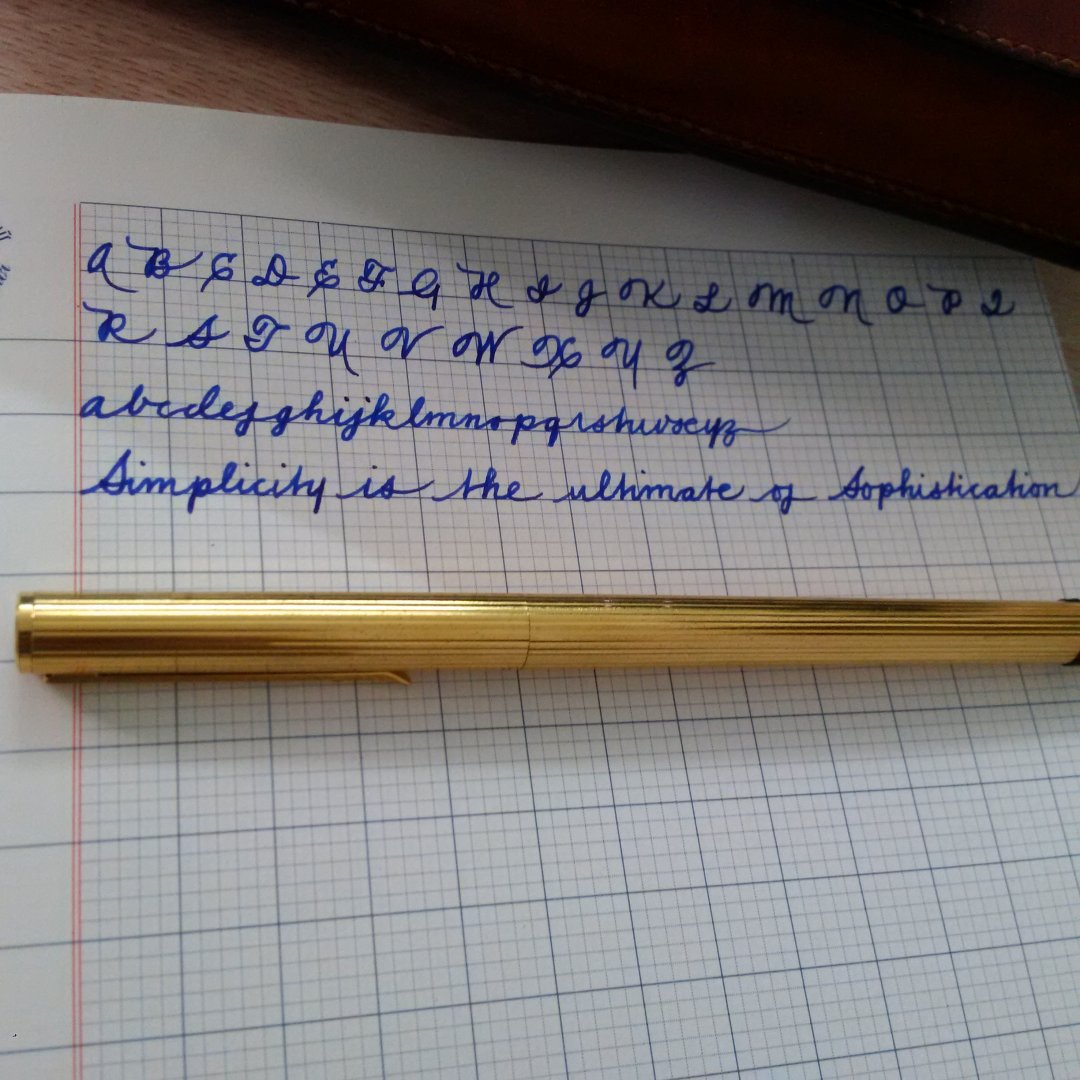 A B C D E F G H I J K L M N O P Q
R S T U V W X Y Z
abcdefghijklmnopqrstuvwxyz
Simplicity is the ultimate of Sophistication